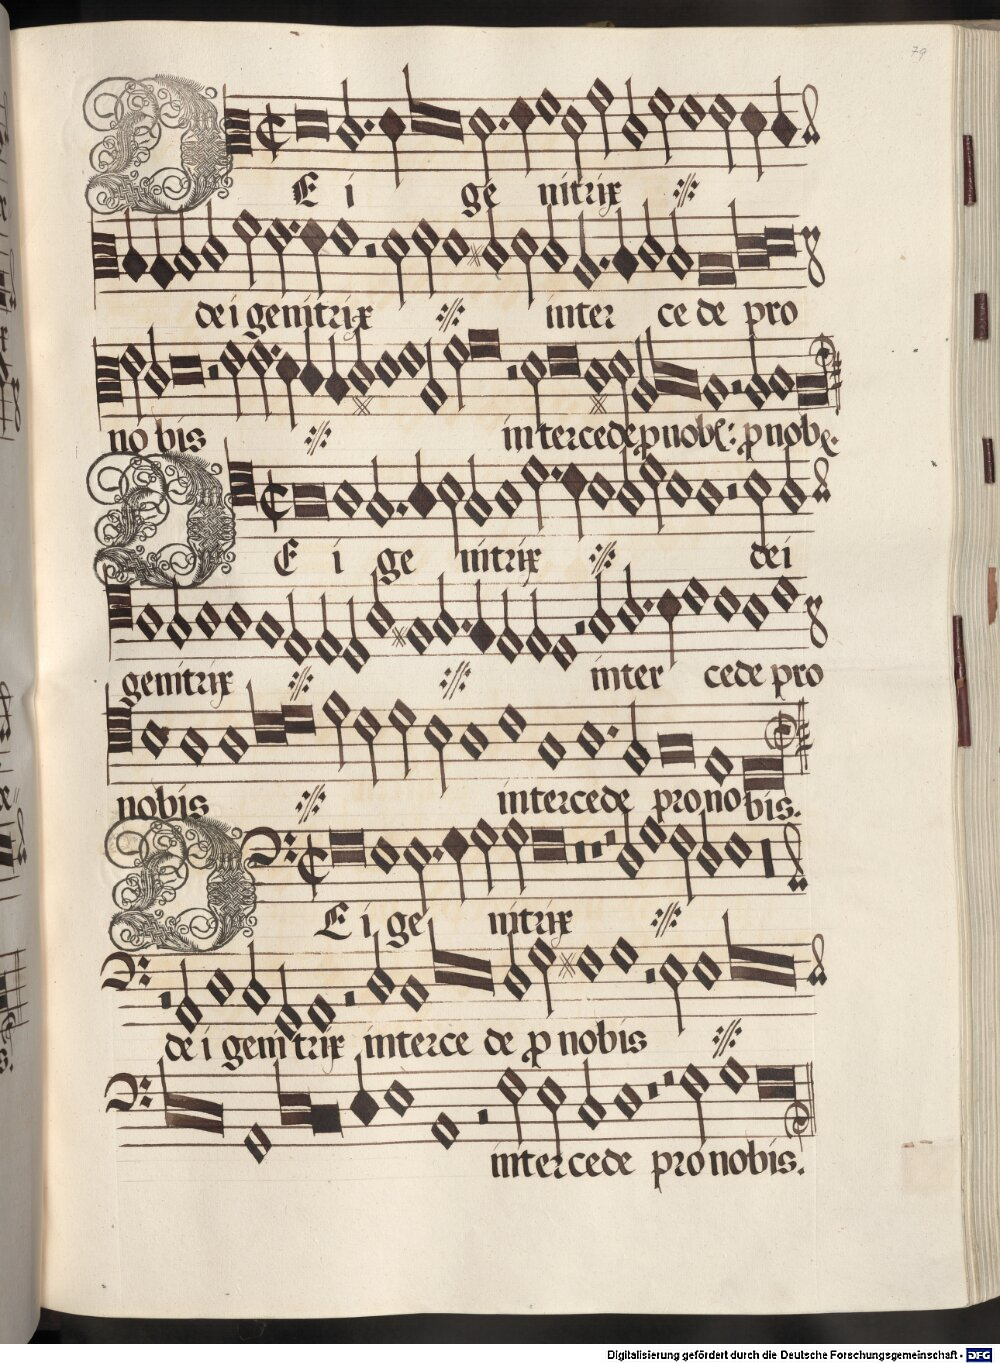 79
DEi ge nitrix ·//·
dei genitrix ·//· inter cede pro
nobis ·//· intercede ꝓ nob: ꝓ nob:
DEi ge nitrix ·//· dei
genitrix ·//· ·//· inter cede pro
nobis ·//· intercede pro nobis.
DEi ge nitrix ·//·
dei genitrix interce de ꝓ nobis ·//·
intercede pro nobis.
Digitalisierung gefördert durch die Deutsche Forschungsgemeinschaft - DFG